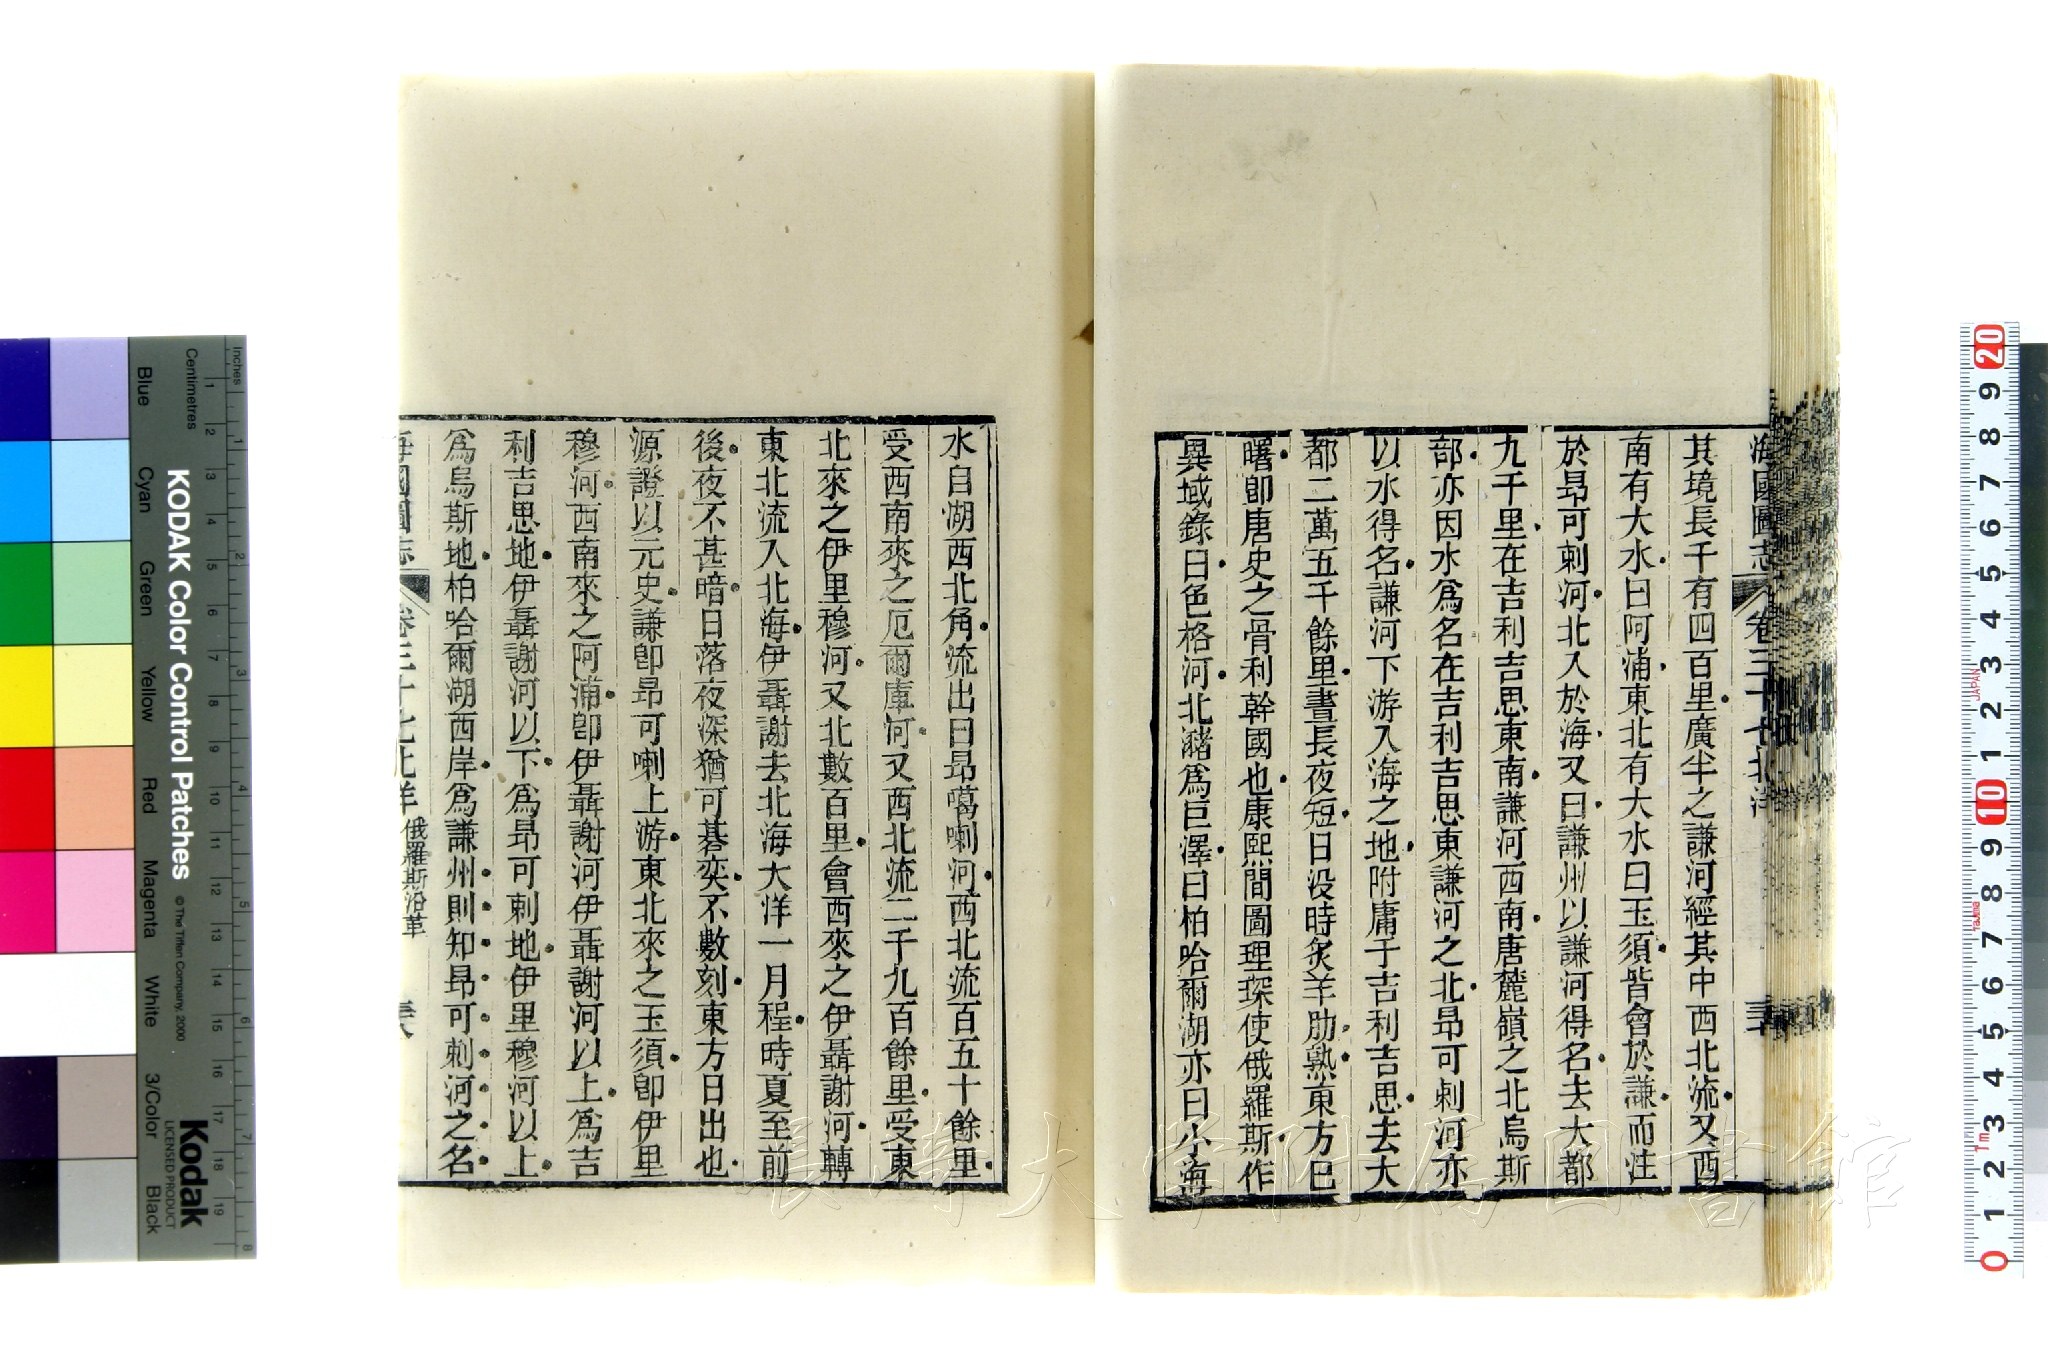 海國圖志
卷三十七北洋
其境長千有四百里廣半之謙河經其中西北流又西
南有大水曰阿浦東北有大水曰玉須皆會於謙而注
於昂可剌河北入於海又曰謙州以謙河得名去大都
九千里在吉利吉思東南謙河西南唐麓嶺之北烏斯
部亦因水爲名在吉利吉思東謙河之北昂可剌河亦
以水得名謙河下游入海之地附庸于吉利吉思去大
都二萬五千餘里晝長夜短日没時炙羊肋熟東方巳
曙卽唐史之骨利幹國也康熙間圖理琛使俄羅斯作
異域錄曰色格河北瀦爲巨澤曰柏哈爾湖亦曰小海
水自湖西北角流出曰昂噶喇河西北流百五十餘里
受西南來之厄爾庫河又西北流二千九百餘里受東
北來之伊里穆河又北數百里會西來之伊聶謝河轉
東北流入北海伊聶謝去北海大洋一月程時夏至前
後夜不甚暗日落夜深猶可棊奕不數刻東方日出也
源證以元史謙卽昂可喇上游東北來之玉須卽伊里
穆河西南來之阿浦卽伊聶謝河伊聶謝河以上爲吉
利吉思地伊聶謝河以下爲昂可剌地伊里穆河以上
爲烏斯地柏哈爾湖西岸爲謙州則知昂可剌河之名
海國圖志
卷三十七北洋 俄羅斯沿革
長崎大学附属図書館
KODAK Color Control Patches
© The Tiffen Company, 2000
Kodak
LICENSED PRODUCT
Inches 1 2 3 4 5 6 7 8
Centimetres 1 2 3 4 5 6 7 8 9 10 11 12 13 14 15 16 17 18 19
Blue Cyan Green Yellow Red Magenta White 3/Color Black
20 9 8 7 6 5 4 3 2 1 10 9 8 7 6 5 4 3 2 1 0
JAPAN